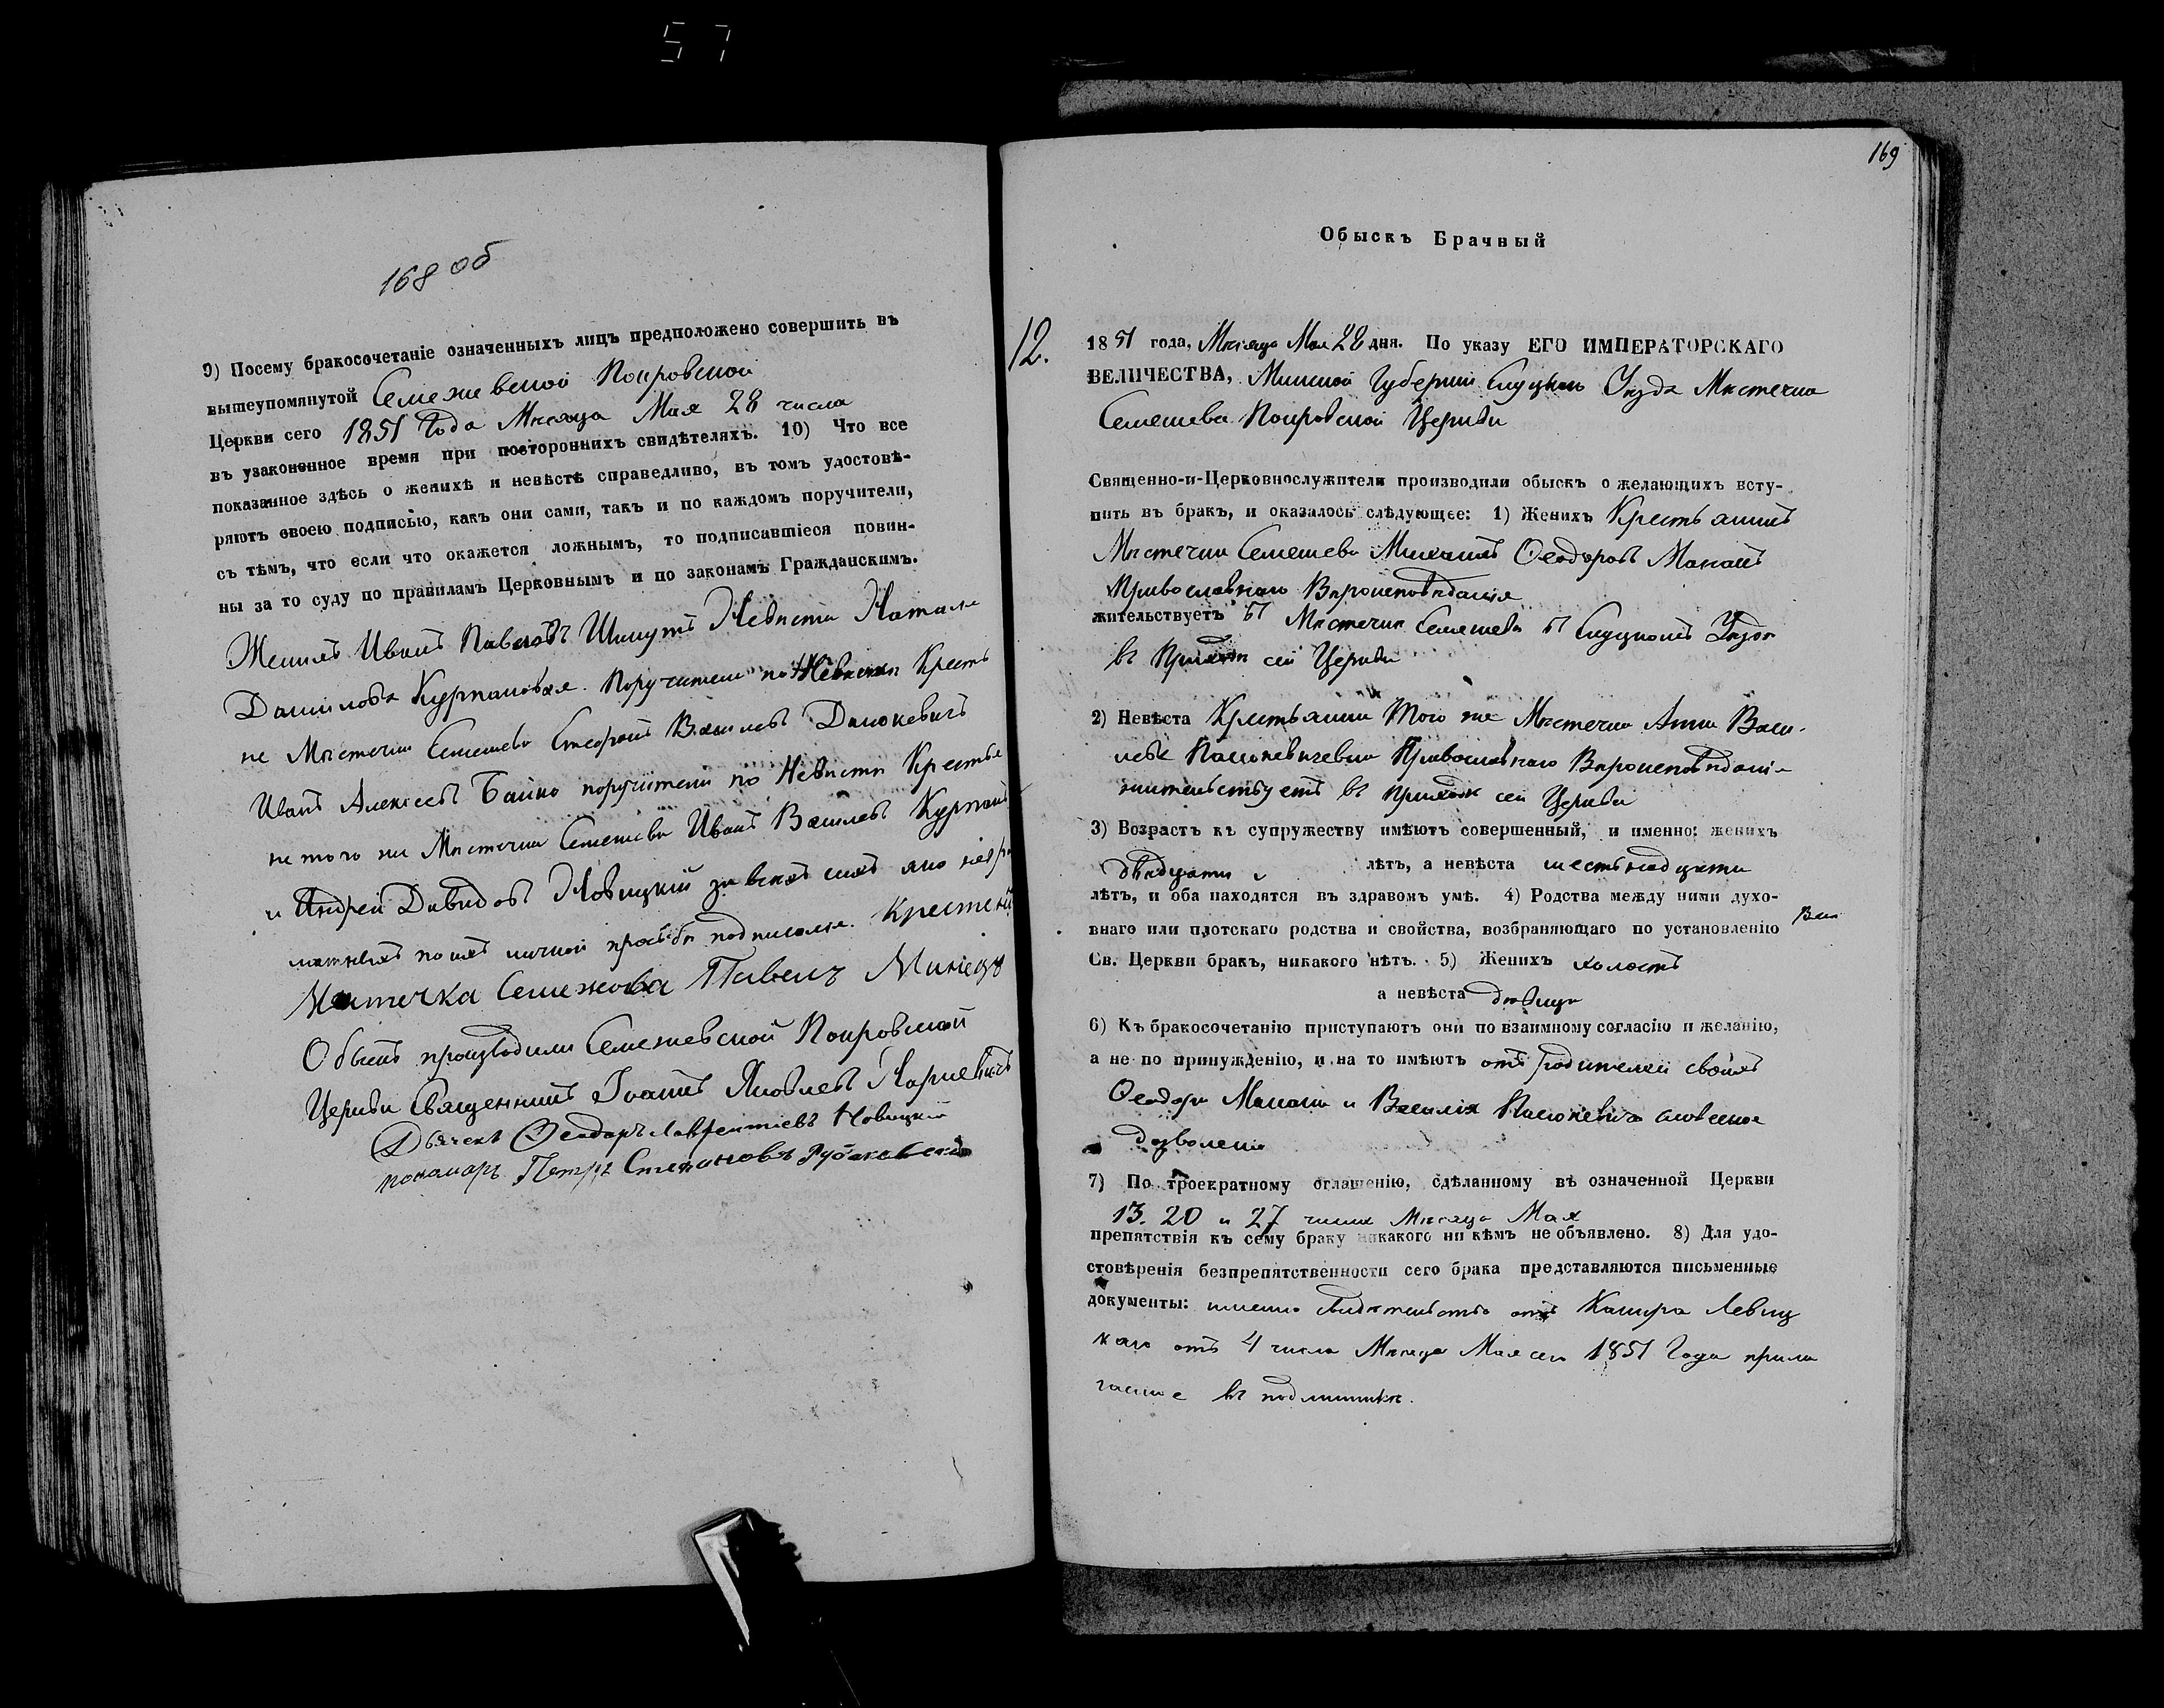 57
168 об
9) Посему бракосочетаніе означенныхъ лицъ предположено совершить въ
вышеупомянутой Семежевской Покровской
Церкви сего 1851 Года Мѣсяца Мая 28 числа
въ узаконенное время при постороннихъ свидѣтеляхъ. 10) Что все
показанное здѣсь о женихѣ и невѣстѣ справедливо, въ томъ удостовѣ-
ряютъ своею подписью, какъ они сами, такъ и по каждомъ поручители,
съ тѣмъ, что если что окажется ложнымъ, то подписавшіеся повин-
ны за то суду по правиламъ Церковнымъ и по законамъ Гражданскимъ.
Женихъ Иванъ Павловъ Шинутъ Невѣста Наталя
Данилова Курпановая. Поручители по Женихѣ Кресть
не Мѣстечка Семежева Василевъ Данюкевичъ
Иванъ Алексѣевъ Банко поручители по Невѣстѣ Крестья
не того же Мѣстечка Семежева Иванъ Василевъ Курпанъ
и Андрей Давидовъ Новицкій за всѣхъ ихъ яко негра
мотныхъ по ихъ личной прозьбѣ подписался. Крестянинъ
Мѣстечка Семежова Павелъ
Обыскъ производили Семежевской Покровской
Церкви Священникъ Іоаннъ Яковлевъ
Дьячекъ Ѳеодоръ Лаврентіевъ Новицкій
пономарь Петръ Степановъ
169
Обыскъ Брачный
12.
1851 года, Мѣсяца Мая 28 дня. По указу ЕГО ИМПЕРАТОРСКАГО
ВЕЛИЧЕСТВА, Минской Губерніи Слуцкаго Уѣзда Мѣстечка
Семежева Покровской Церкви
Священно-и-Церковнослужители производили обыскъ о желающихъ всту-
пить въ бракъ, и оказалось слѣдующее: 1) Женихъ Крестьянинъ
Мѣстечка Семежева Михаилъ Ѳеодоровъ Маханъ
Православнаго Вѣроисповѣданія
жительствуетъ въ Мѣстечкѣ Семежевѣ въ Слуцкомъ Уѣздѣ
въ Приходѣ сей Церкви
2) Невѣста Крестьянка Того же Мѣстечка Анна Васи-
лева Пашкевичевна Православнаго Вѣроисповѣданія
жительствуетъ въ приходѣ сей Церкви
3) Возрастъ къ супружеству имѣютъ совершенный, и именно: женихъ
двадцати лѣтъ, а невѣста шестьнадцати
лѣтъ, и оба находятся въ здравомъ умѣ. 4) Родства между ними духо-
внаго или плотскаго родства и свойства, возбраняющаго по установленію
Св. Церкви бракъ, никакого нѣтъ. 5) Женихъ холостъ
а невѣста дѣвица
6) Къ бракосочетанію приступаютъ они по взаимному согласію и желанію,
а не по принужденію, и на то имѣютъ отъ родителей своихъ
Ѳеодора Махана и Василія Пашкевича словесное
дозволеніе
7) По троекратному оглашенію, сдѣланному въ означенной Церкви
13. 20 и 27 числа Мѣсяца Мая
препятствія къ сему браку никакого ни кѣмъ не объявлено. 8) Для удо-
стовѣренія безпрепятственности сего брака представляются письменные
документы: именно Свидѣтельство отъ Левиц
каго отъ 4 числа Мѣсяца Мая сего 1851 Года прила
гаемое въ подлинникѣ.